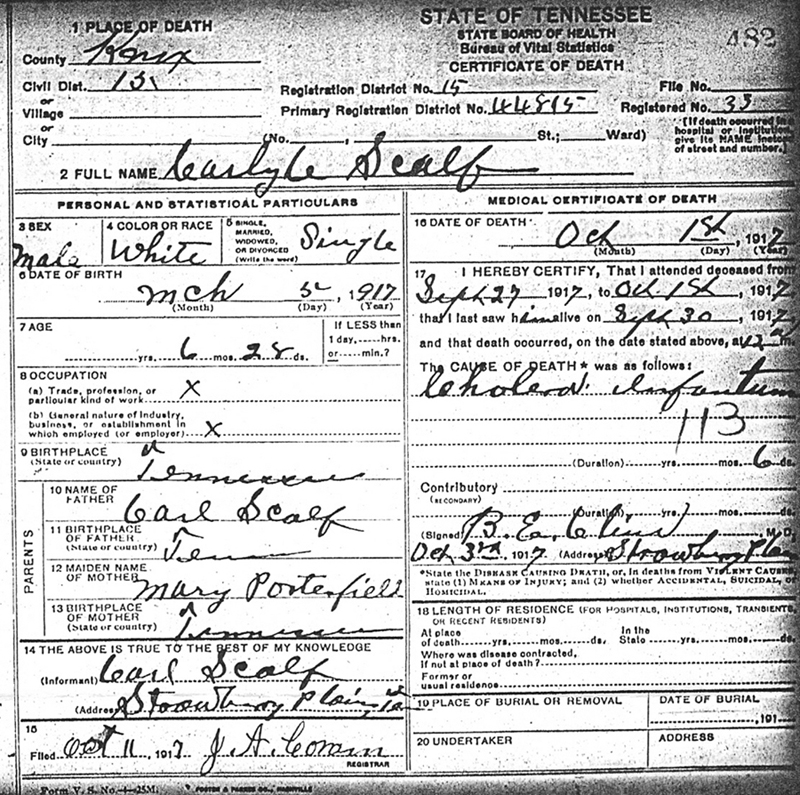 STATE OF TENNESSEE
STATE BOARD OF HEALTH
Bureau of Vital Statistics
CERTIFICATE OF DEATH
482
1 PLACE OF DEATH
County Knox
Civil Dist. 15
or
Village
or
City (No., St.; Ward)
Registration District No. 15 File No.
Primary Registration District No. 44815 Registered No. 33
(If death occurred in
hospital or institution,
give its NAME instead
of street and number.)
2 FULL NAME Carlyle Scalf
PERSONAL AND STATISTICAL PARTICULARS
3 SEX
Male
4 COLOR OR RACE
White
5 SINGLE,
MARRIED,
WIDOWED,
OR DIVORCED
(Write the word)
Single
6 DATE OF BIRTH
mch 5, 1917
(Month) (Day) (Year)
7 AGE
yrs. 6 mos. 28 ds.
If LESS than
1 day,....hrs.
or....min.?
8 OCCUPATION
(a) Trade, profession, or
particular kind of work X
(b) General nature of industry,
business, or establishment in
which employed (or employer) X
9 BIRTHPLACE
(State or country) Tennessee
PARENTS
10 NAME OF
FATHER Carl Scalf
11 BIRTHPLACE
OF FATHER
(State or country) Tenn
12 MAIDEN NAME
OF MOTHER Mary Porterfield
13 BIRTHPLACE
OF MOTHER
(State or country) Tennessee
14 THE ABOVE IS TRUE TO THE BEST OF MY KNOWLEDGE
(Informant) Carl Scalf
(Address) Strawberry Plains
15
Filed Oct 11, 1917 J. A.
REGISTRAR
MEDICAL CERTIFICATE OF DEATH
16 DATE OF DEATH
Oct 1st, 1917
(Month) (Day) (Year)
17 I HEREBY CERTIFY, That I attended deceased from
Sept 27 1917, to Oct 1st, 1917
that I last saw him alive on Sept 30, 1917
and that death occurred, on the date stated above, at 12 m.
The CAUSE OF DEATH* was as follows:
Cholera Infantum
113
(Duration) yrs. mos. 6 ds.
Contributory
(SECONDARY)
(Duration) yrs. mos. ds.
(Signed) B. E. M.D.
Oct 3rd, 1917 (Address) Strawberry Plain
*State the DISEASE CAUSING DEATH, or, in deaths from VIOLENT CAUSES,
state (1) MEANS OF INJURY; and (2) whether ACCIDENTAL, SUICIDAL, or
HOMICIDAL.
18 LENGTH OF RESIDENCE (FOR HOSPITALS, INSTITUTIONS, TRANSIENTS,
OR RECENT RESIDENTS)
At place
of death yrs. mos. ds.
In the
State yrs. mos. ds.
Where was disease contracted,
If not at place of death?
Former or
usual residence
19 PLACE OF BURIAL OR REMOVAL
DATE OF BURIAL
, 191
20 UNDERTAKER
ADDRESS
Form V. S. No.-4-25M. FOSTER & PARKES CO., NASHVILLE